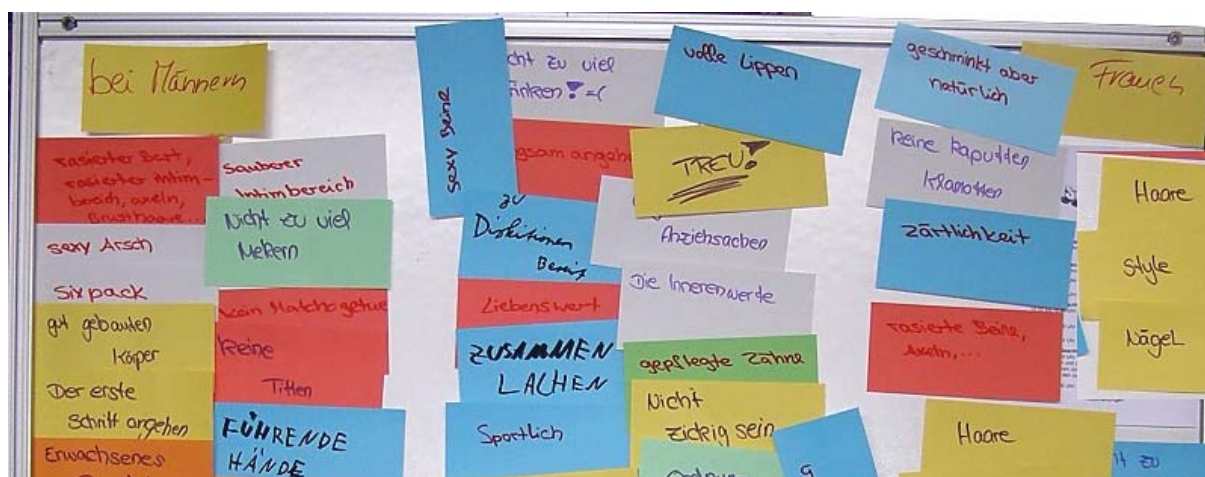 bei Männern
rasierter Bart,
rasierter Intim-
bereich, axeln,
Brusthaare...
sexy Arsch
Sixpack
gut gebauten
Körper
Der erste
Schritt angehen
Erwachsenes
Sauberer
Intimbereich
Nicht zu viel
Mekern
kein Matchogetue
Keine
Titten
FÜHRENDE
HÄNDE
sexy Beine
zu
Diskitionen
Bereit
Liebenswert
ZUSAMMEN
LACHEN
Sportlich
zu viel
=(
volle Lippen
TREU!
Anziehsachen
Die Innerenwerte
gepflegte Zähne
Nicht
zickig sein
geschminkt aber
natürlich
Keine kaputten
Klamotten
zärtlichkeit
rasierte Beine,
Axeln,...
Haare
Frauen
Haare
Style
Nägel
zu